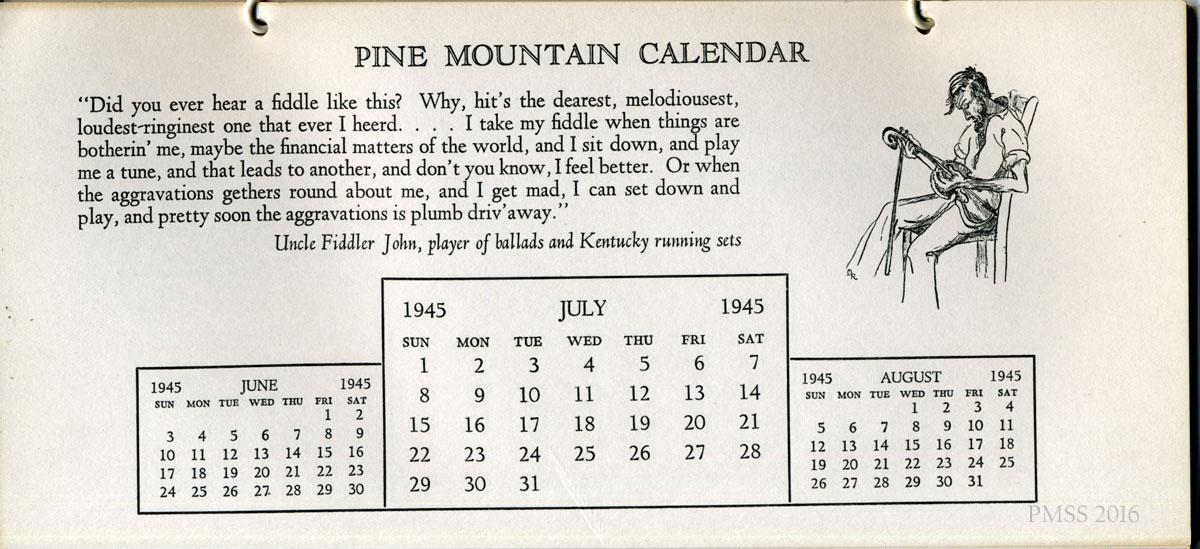 PINE MOUNTAIN CALENDAR
"Did you ever hear a fiddle like this? Why, hit's the dearest, melodiousest,
loudest-ringinest one that ever I heerd. . . . I take my fiddle when things are
botherin' me, maybe the financial matters of the world, and I sit down, and play
me a tune, and that leads to another, and don't you know, I feel better. Or when
the aggravations gethers round about me, and I get mad, I can set down and
play, and pretty soon the aggravations is plumb driv'away."
Uncle Fiddler John, player of ballads and Kentucky running sets
1945 JUNE 1945
SUN MON TUE WED THU FRI SAT
1 2
3 4 5 6 7 8 9
10 11 12 13 14 15 16
17 18 19 20 21 22 23
24 25 26 27 28 29 30
1945 JULY 1945
SUN MON TUE WED THU FRI SAT
1 2 3 4 5 6 7
8 9 10 11 12 13 14
15 16 17 18 19 20 21
22 23 24 25 26 27 28
29 30 31
1945 AUGUST 1945
SUN MON TUE WED THU FRI SAT
1 2 3 4
5 6 7 8 9 10 11
12 13 14 15 16 17 18
19 20 21 22 23 24 25
26 27 28 29 30 31
PMSS 2016